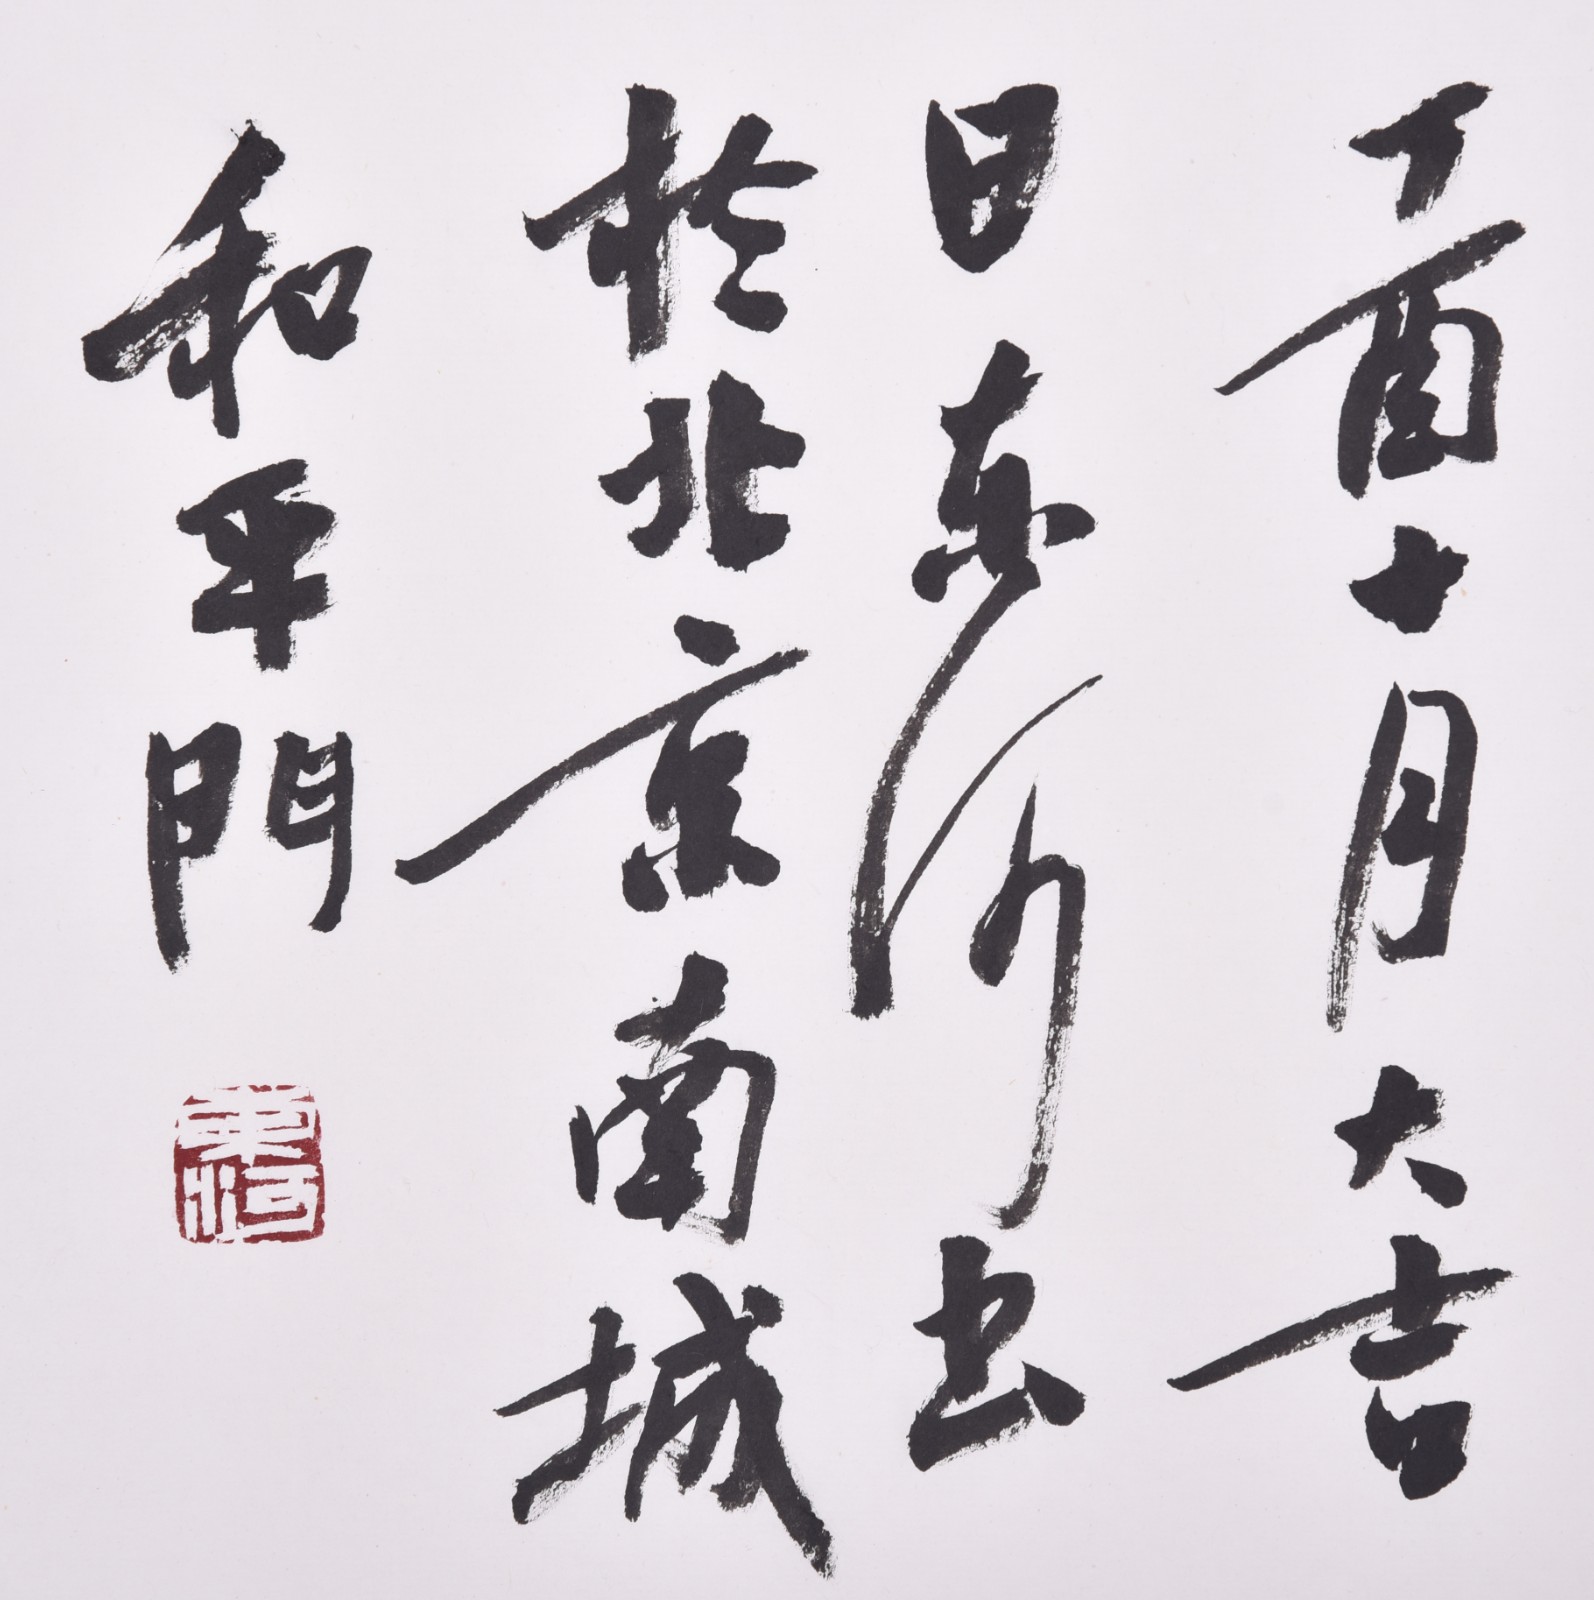 丁酉十月大吉
日東河書
於北京南城
和平門
東河